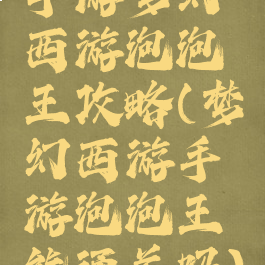 手游梦幻
西游泡泡
王攻略(梦
幻西游手
游泡泡王